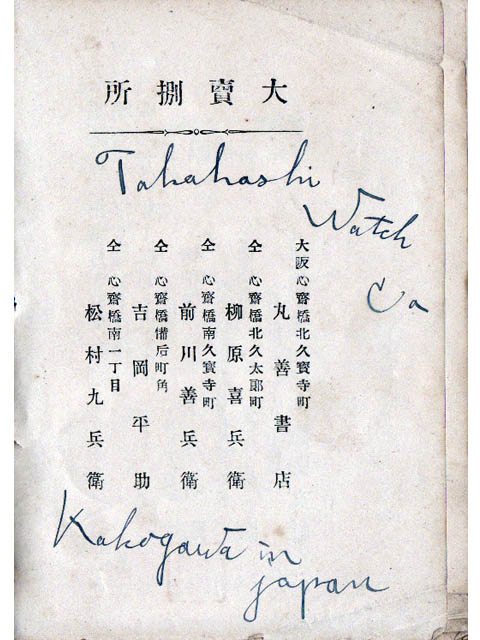 大賣捌所
Takahashi
Watch
Co
大阪心齋橋北久寳寺町
丸善書店
仝 心齋橋北久太郎町
柳原喜兵衛
仝 心齋橋南久寳寺町
前川善兵衛
仝 心齋橋備后町角
吉岡平助
仝 心齋橋南一丁目
松村九兵衛
Kakogawa in
japan